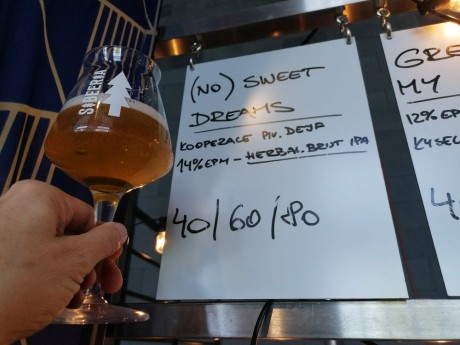 SIBEERIA
(NO) SWEET
DREAMS
KOOPERACE PIV. DEJF
14% EPM - HERBAL BRUT IPA
40/60/80
GRE
MY
12% EP
KYSEL
4